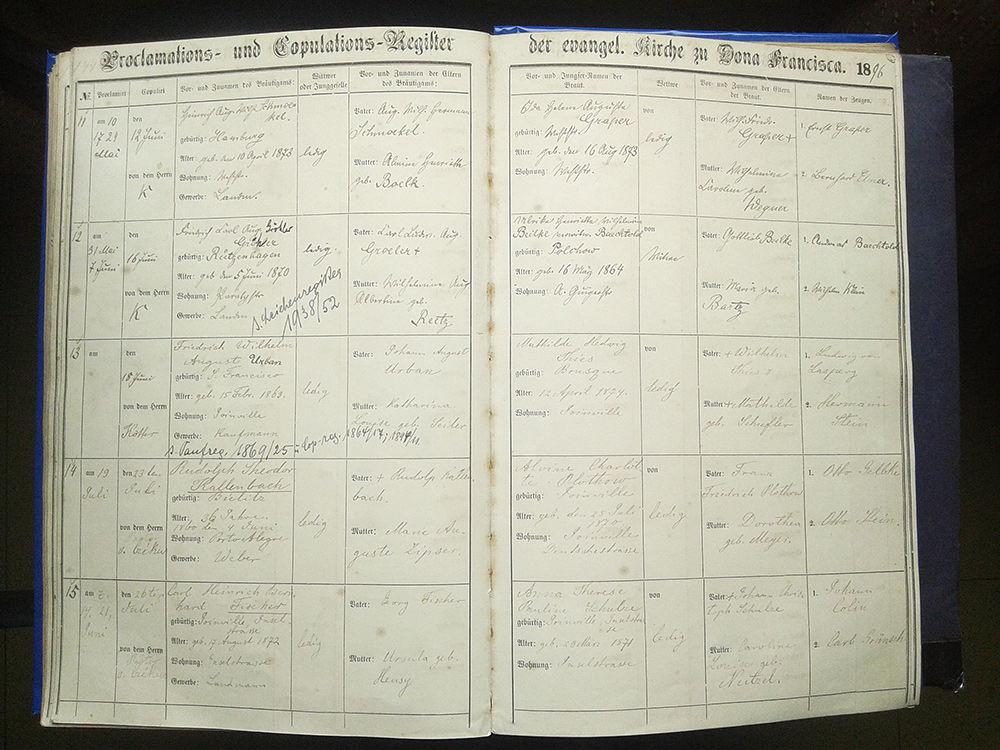 Proclamations- und Copulations-Register der evangel. Kirche zu Dona Francisca. 1896
№ Proclamiert Copuliert Vor- und Zunamen des Bräutigams: Wittwer oder Junggeselle Vor- und Zunamen der Eltern des Bräutigams:
Vor- und Jungfer-Namen der Braut. Wittwe Vor- und Zunamen der Eltern der Braut. Namen der Zeugen.
11 am 10 17 24 Mai
den 12 Juni
von dem Herrn K
Heinrich Aug. Wilh. Schmoekel.
gebürtig: Hamburg
Alter: geb. den 10 April 1873
Wohnung: Weststr.
Gewerbe: Landm.
ledig
Vater: Aug. Wilh. Hermann Schmoekel.
Mutter: Almine Henriette geb. Boelk.
Ida Helene Auguste Graper
gebürtig: Weststr.
Alter: geb. den 16 Aug 1873
Wohnung: Weststr.
von
ledig
Vater: Wilh. Friedr. Graper +
Mutter: Wilhelmine Caroline geb. Wegner
1. Ernst Graper
2. Bernhard
12
31 Mai 7 Juni
den 16 Juni
von dem Herrn K
Friedrich Carl Aug.
gebürtig: Rützenhagen
Alter: geb den 5 Juni 1870
Wohnung:
Gewerbe: Landm.
s. Leichenregister 1938/52
ledig
Vater: Carl Ludw. Aug.
Mutter: Wilhelmine Aug Albertine geb. Reetz
Ulrike Henriette Wilhelmine Beilke verwitw. Baecktold
gebürtig: Polchow
Alter: geb. 16 März 1864
Wohnung:
von
Witwe
Vater: Gottlieb Beilke
Mutter: Maria geb. Bartz
1. Andreas Baecktold
2. Wilhelm Klein
13 am
den 18 Juni
von dem Herrn Kölle
Friedrich Wilhelm August Urban
gebürtig: S. Francisco
Alter: geb. 15 Febr. 1863.
Wohnung: Joinville
Gewerbe: Kaufmann
s. Taufreg. 1869/25 - Cop-reg. 1864/17;
ledig
Vater: Johann August Urban
Mutter: Katharina Louise geb. Seiler
Mathilde Hedwig Thies
gebürtig: Brusque
Alter: 12 April 1874.
Wohnung: Joinville
von
ledig
Vater: + Wilhelm Thies
Mutter: + Mathilde geb. Scheffler
1. Ludwig von Lasperg
2. Hermann Stein
14 am 19 Juli
den 23 ten Juli
von dem Herrn
Rudolph Theodor Kaltenbach
gebürtig: Bielitz
Alter: 36 Jahre. 1860 den 4 Juni
Wohnung: Porto Alegre
Gewerbe: Weber
ledig
Vater: + Rudolp Kaltenbach.
Mutter: Marie Auguste Zipser.
Alvine Charlotte Plothow
gebürtig: Joinville
Alter: geb. den 25 Juli
Wohnung: Joinville
von
ledig
Vater: Franz Friedrich Plothow
Mutter: Dorothea geb. Meyer.
1. Otto Gelbke
2. Otto Stein
15 am 7. 14, 21, Juni
den 26 ten Juli
von dem Herrn
Carl Heinrich Bernhard Fischer
gebürtig: Joinville Inselstrasse
Alter: geb. 17. August 1872
Wohnung: Inselstrasse
Gewerbe: Landmann
ledig
Vater: Georg Fischer
Mutter: Ursula geb. Heusy
Anna Therese Pauline Schulze
gebürtig: Joinville Inselstrasse
Alter: geb. 23 März 1871
Wohnung: Inselstrasse
von
ledig
Vater: + Johann Christoph Schulze
Mutter: Caroline Louise geb. Neitzel.
1. Johann Colin
2. Carl